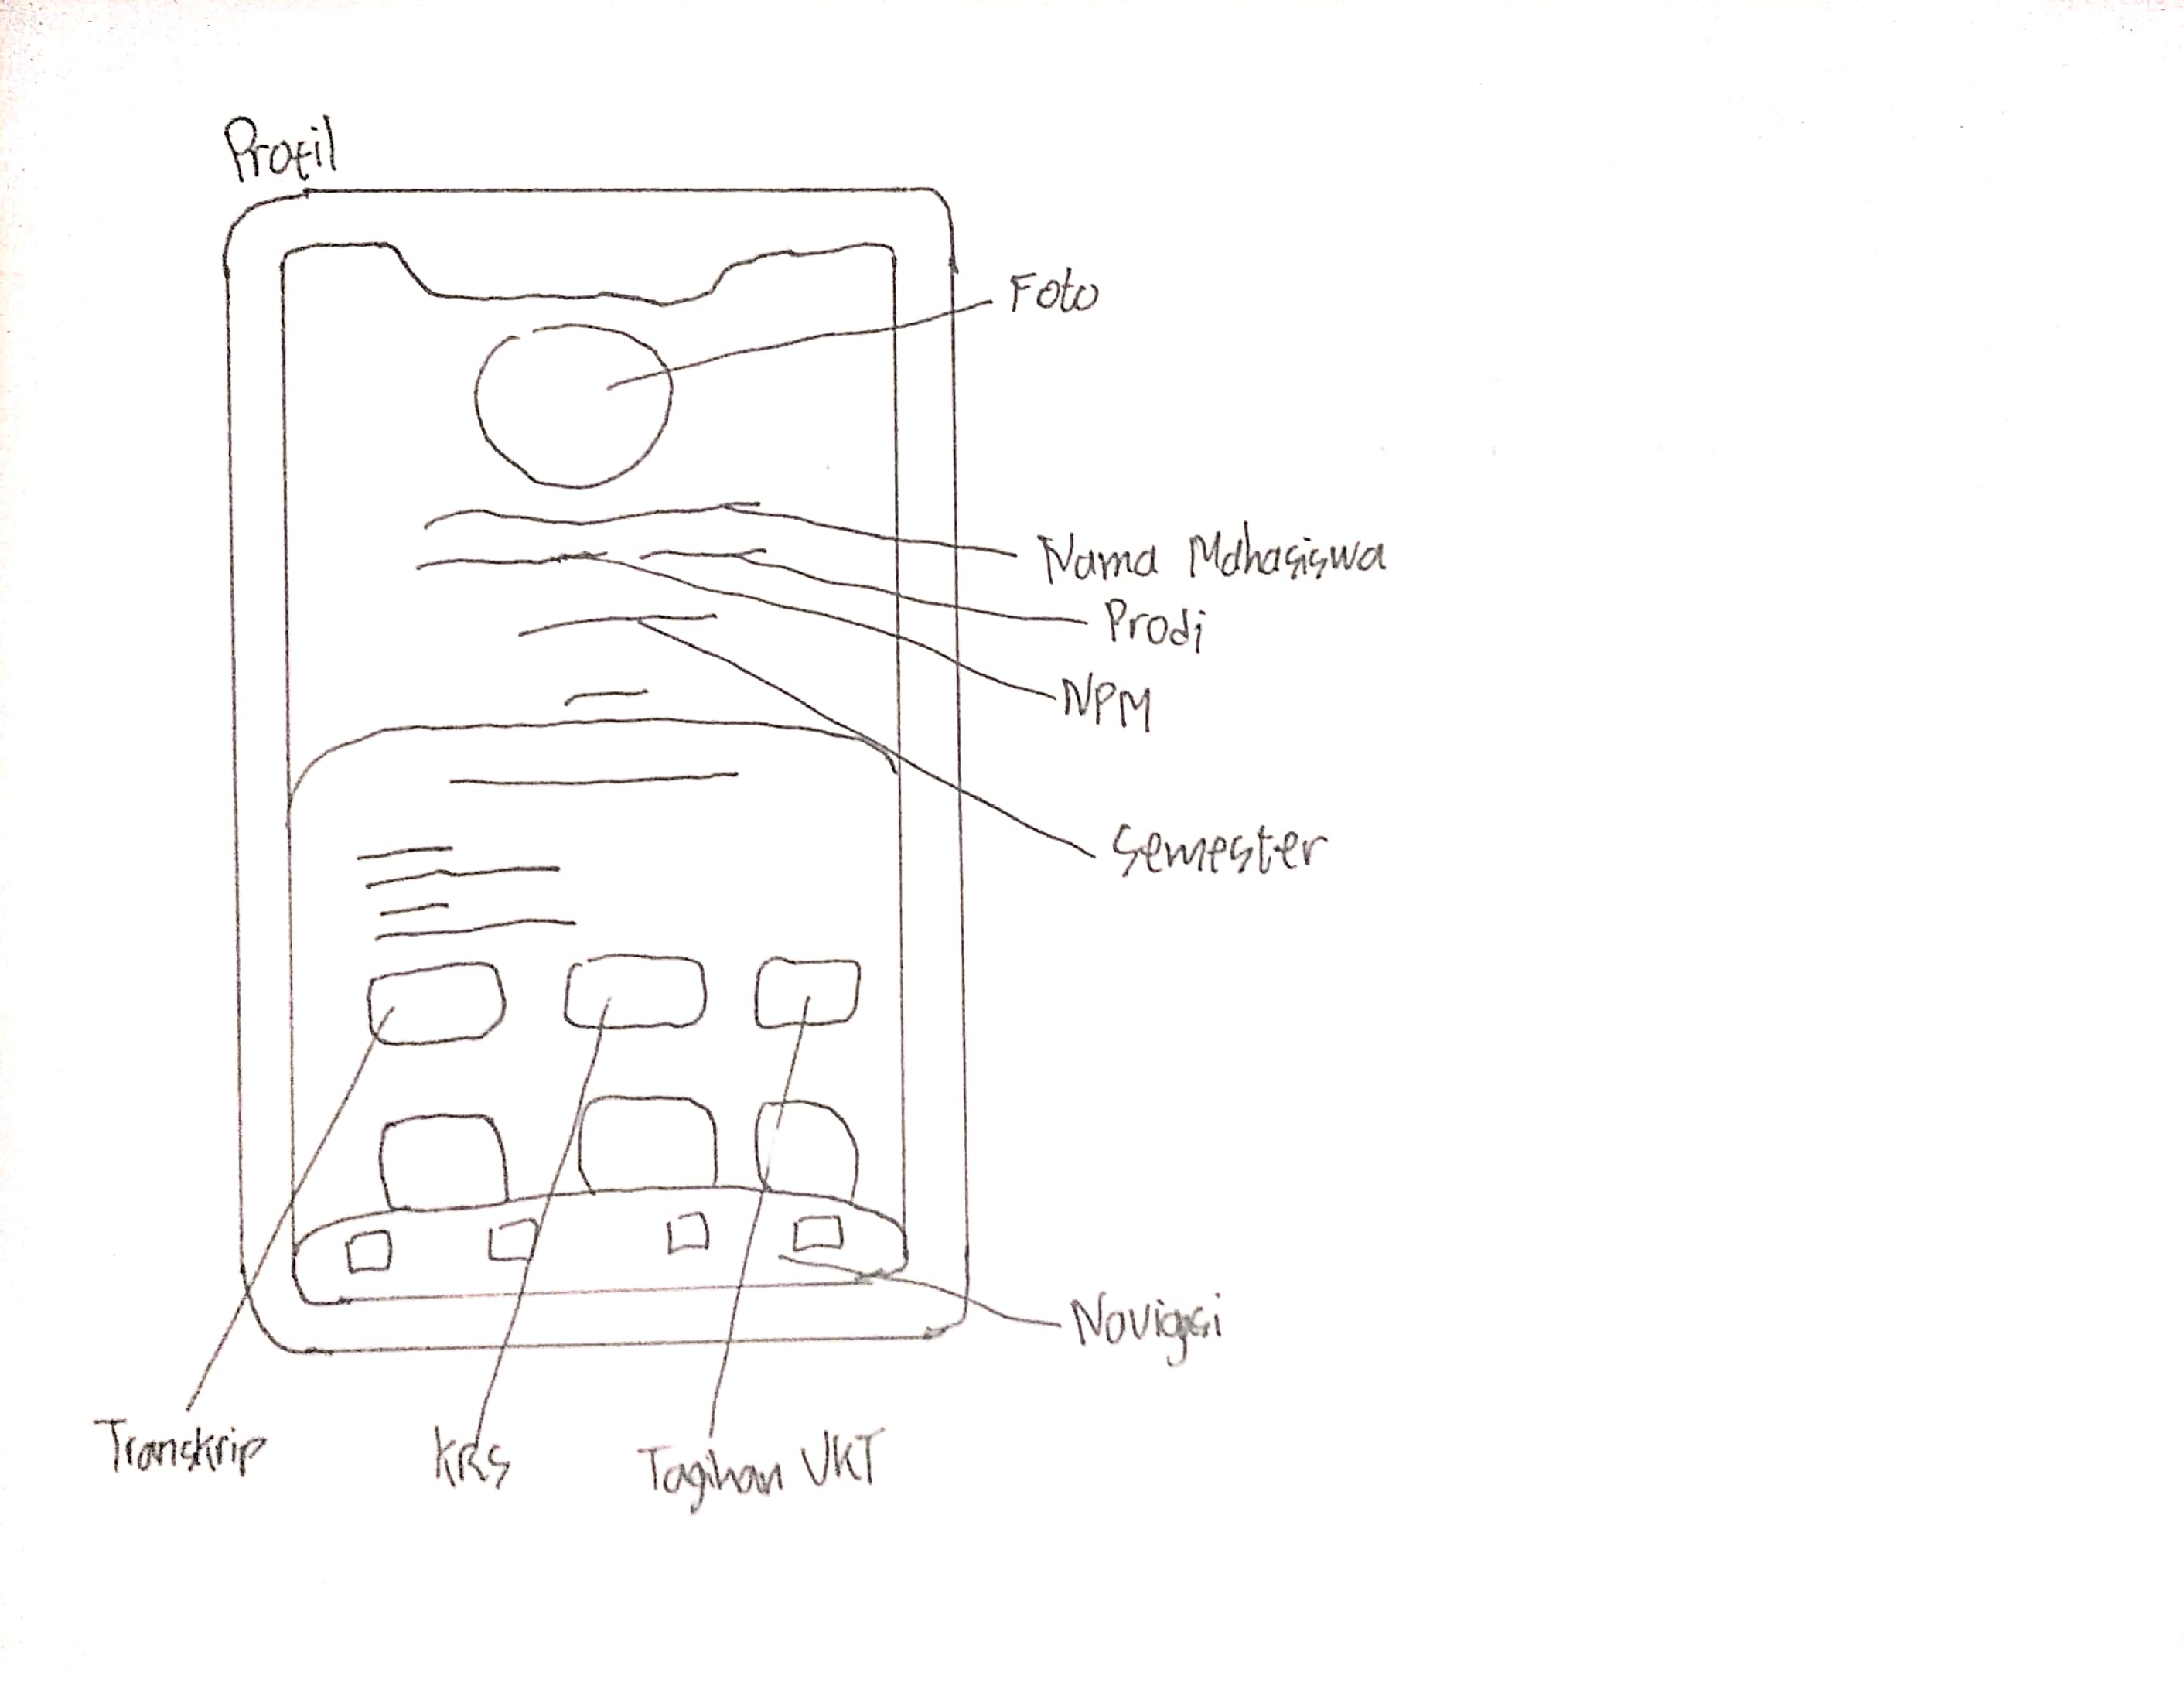 Profil
Foto
Nama Mahasiswa
Prodi
NPM
Semester
Navigasi
Transkrip
KRS
Tagihan UKT